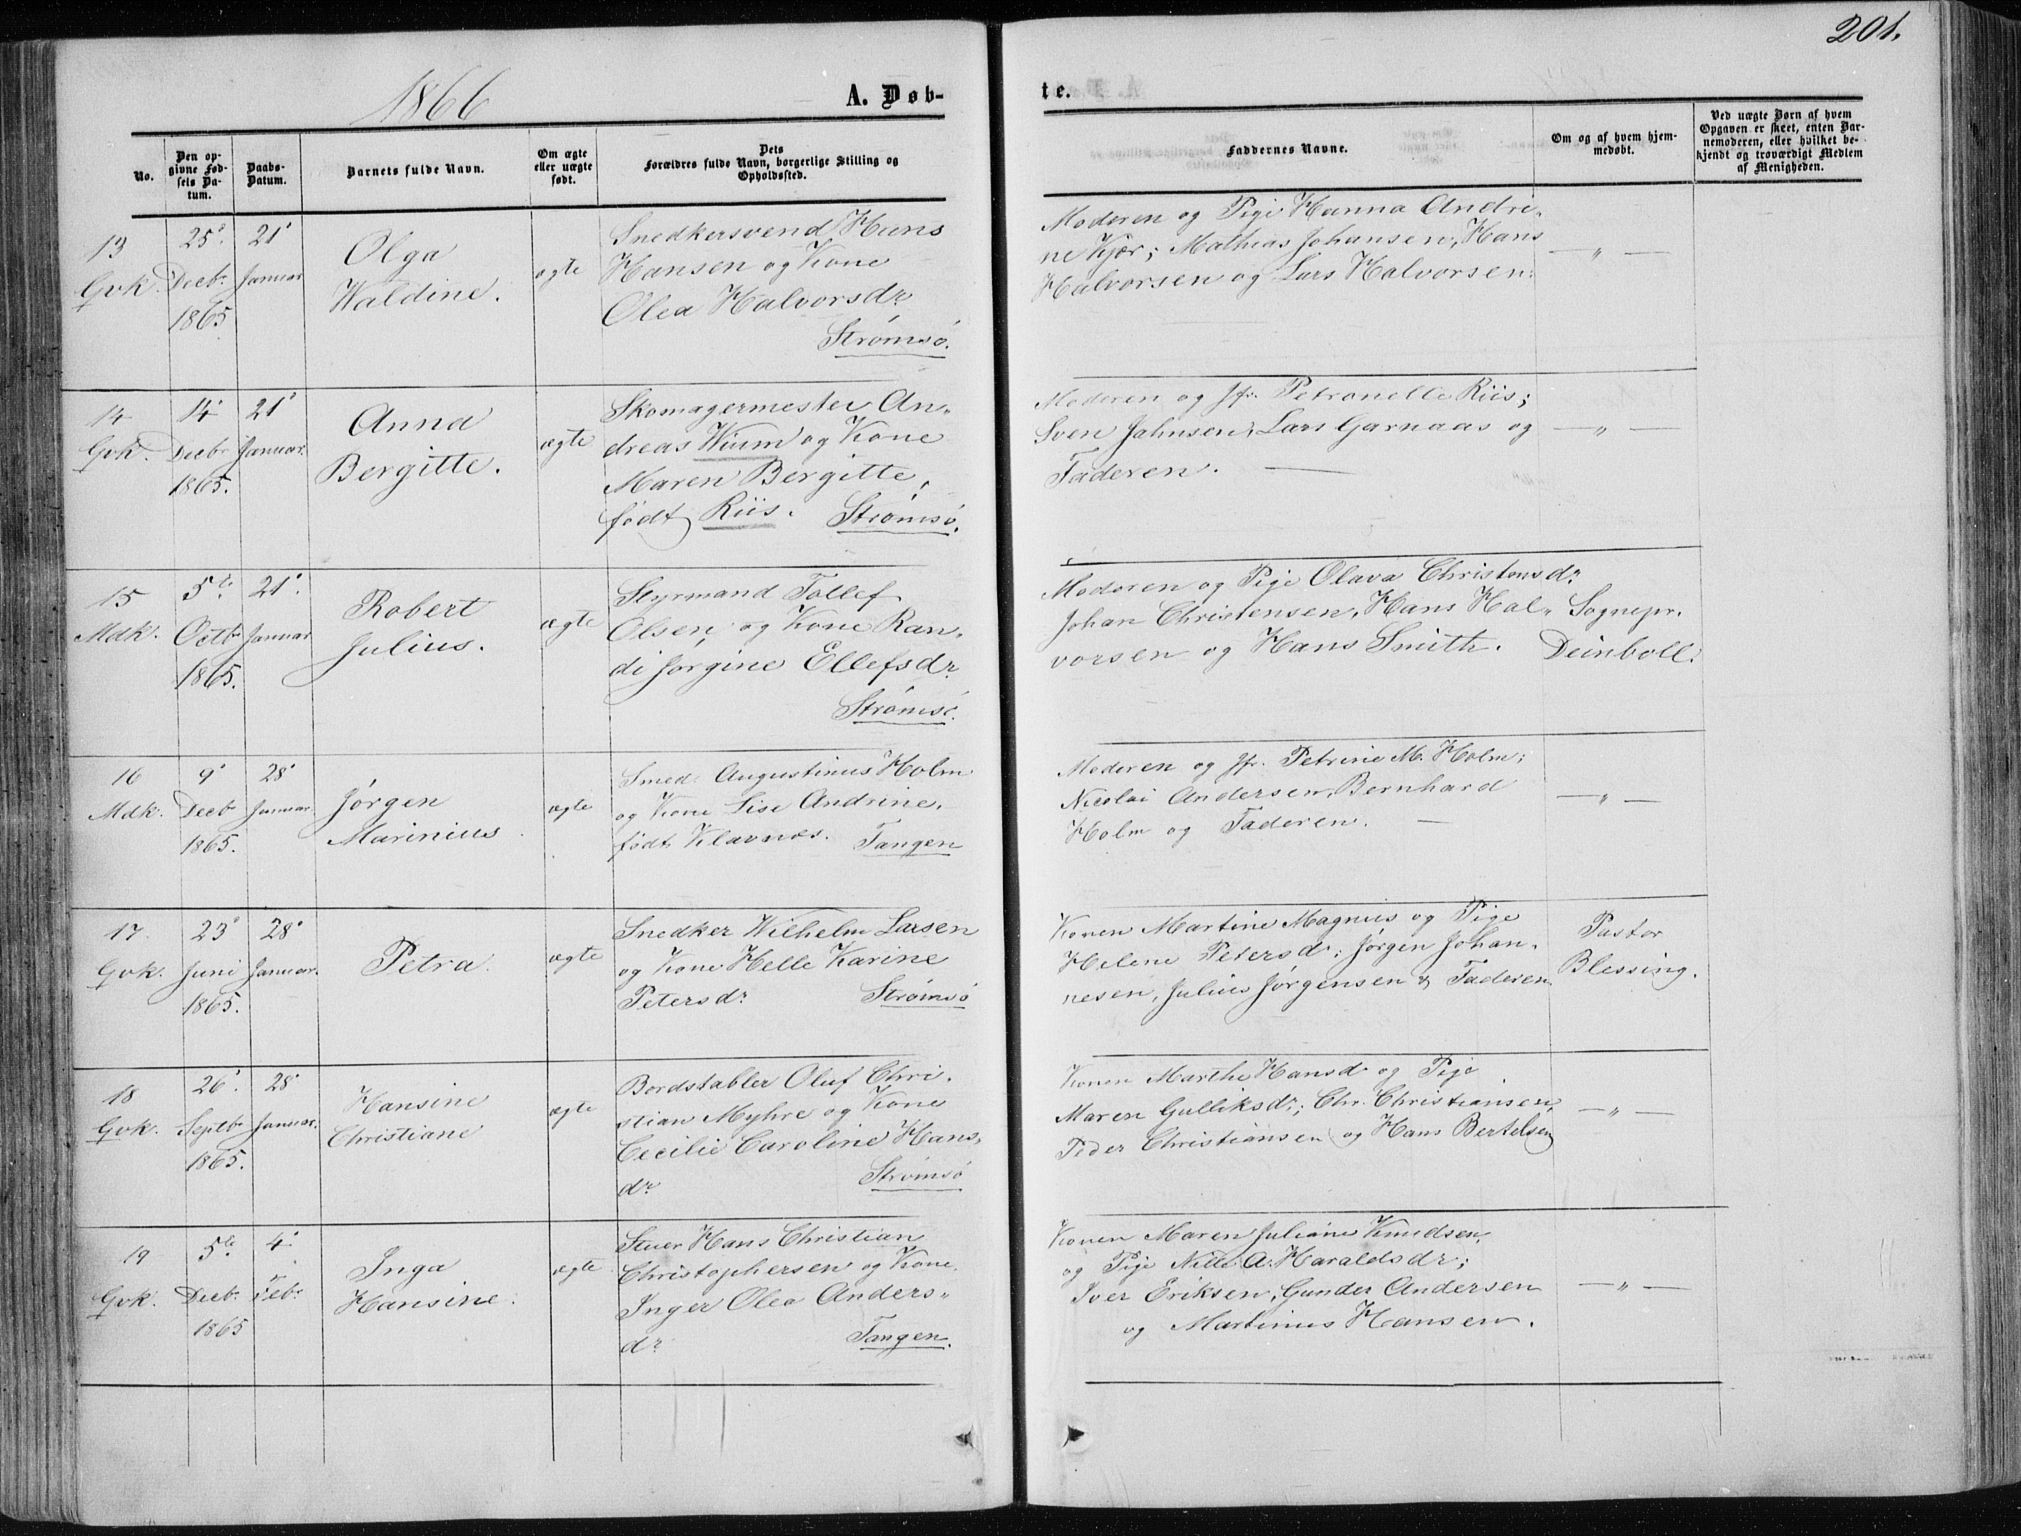 201.
1866
A. Døb-
te.
No.
Den op-
givne Fød-
sels Da-
tum.
Daabs-
Datum.
Barnets fulde Navn.
Om ægte
eller uægte
født.
Dets
Forældres fulde Navn, borgerlige Stilling og
Opholdssted.
Faddernes Navne.
Om og af hvem hjem-
medøbt.
Ved uægte Børn af hvem
Opgaven er skeet, enten Bar-
nemoderen, eller hvilket be-
kjendt og troværdigt Medlem
af Menigheden.
13
Qvk.
25'
Decbr
1865
21'
Januar
Olga
Waldine.
ægte
Snedkersvend Hans
Hansen og Kone
Olea Halvorsdr
Strømsø.
Moderen og Pige Hanna Andri-
ne Kjær; Mathias Johansen, Hans
Halvorsen og Lars Halvorsen.
— „ —
14
Qvk.
14'
Decbr
1865.
21'
Januar.
Anna
Bergitte.
ægte
Skomagermester An-
dreas Wium og Kone
Maren Bergitte,
født Riis. Strømsø.
Moderen og Jfr. Petronelle Riis;
Sven Jahnsen, Lars Garnaas og
Faderen. —
— „ —
15
Mdk.
5te
Octbr
1865.
21'
Januar
Robert
Julius.
ægte
Styrmand Tollef
Olsen og Kone Ran-
di Jørgine Ellefsdr
Strømsø.
Moderen og Pige Olava Christensdr
Johan Christensen, Hans Hal-
vorsen og Hans Smith.
Sognepr.
Deinboll.
16
Mdk.
9'
Decbr
1865.
28'
Januar.
Jørgen
Marinius.
ægte
Smed Augustinus Holm
og Kone Lise Andrine,
født Klavnæs. Tangen
Moderen og Jfr. Petrine M. Holm;
Nicolai Andersen, Bernhard
Holm og Faderen. —
— „ —
17.
Qvk.
23'
Juni
1865.
28'
Januar.
Petra.
ægte
Snedker Wilhelm Larsen
og Kone Helle Karine
Petersdr Strømsø
Konen Martine Magnus og Pige
Helene Petersd.; Jørgen Johan-
nesen, Julius Jørgensen & Faderen
Pastor
Blessing.
18
Qvk.
26'
Septbr
1865.
28'
Januar.
Hansine
Christiane
ægte
Bordstabler Oluf Chri-
stian Myhre og Kone
Cecilie Caroline Hans-
dr Strømsø
Konen Marthe Hansd. og Pige
Maren Gulliksdr; Chr. Christiansen,
Peder Christiansen og Hans Bertelsen
— „ —
19
Qvk.
5te
Decbr
1865
4'
Febr
Inga
Hansine.
ægte
Stuer Hans Christian
Christophersen og Kone
Inger Olea Anders-
dr Tangen.
Konen Maren Juliane Knudsen,
og Pige Nille A. Haraldsdr;
Iver Eriksen, Gunder Andersen
og Martinius Hansen.
— „ —